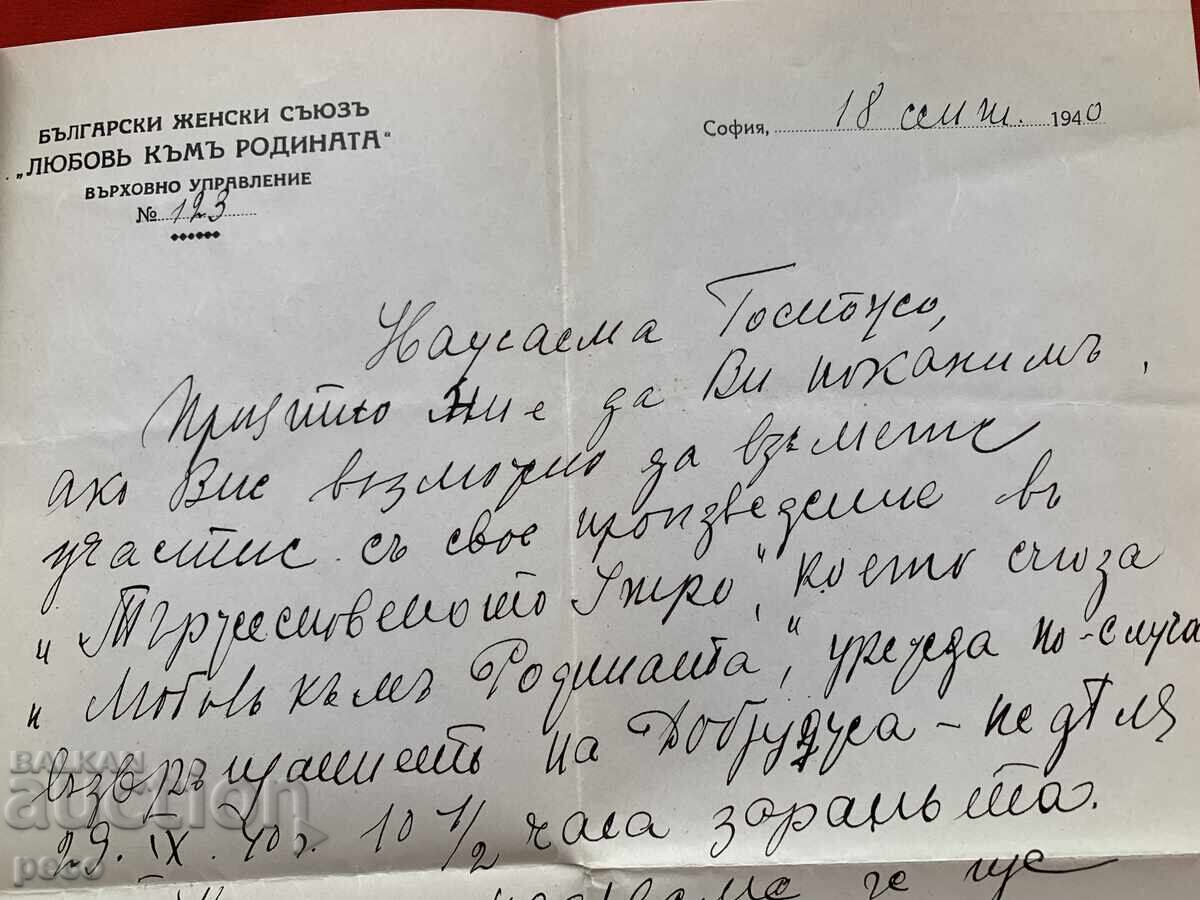 БЪЛГАРСКИ ЖЕНСКИ СЪЮЗЪ
„ЛЮБОВЬ КЪМЪ РОДИНАТА“
ВЪРХОВНО УПРАВЛЕНИЕ
№ 123
София, 18 септ. 1940
Уважаема Госпожо,
Приятно ни е да Ви поканимъ,
ако Ви е възможно да вземете
участие съ свое произведение въ
„Тържественото Утро“, което съюза
„Любовь къмъ Родината“, урежда по-случай
възвръщанието на Добруджа – недѣля
29. IX. 40 г. 10 1/2 часа зараньта.
че ще
БАЛКАН
auction
peco